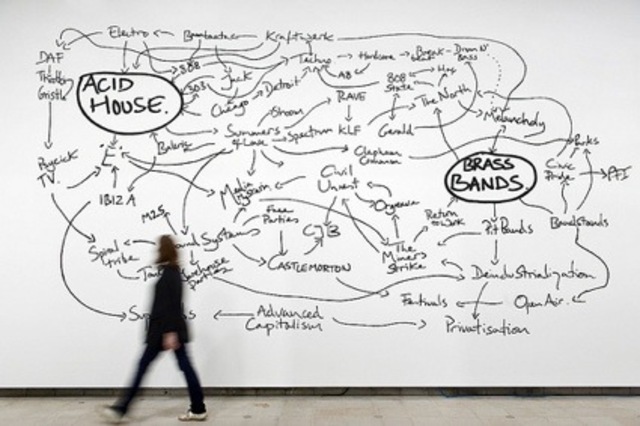 Electro
Bambaataa
Kraftwerk
DAF
Throbbing
Gristle
ACID
HOUSE.
808
303
Jack
Chicago
Detroit
Techno
Hardcore
Break-
beat
Drum N'
Bass
AB
RAVE
808
State
Hag
The North
Melancholy
Shoom
Summers
of Love
Spectrum
KLF
Gerald
Clapham
Common
BRASS
BANDS.
Civic
Pride
Parks
PFI
Balearic
E
Psychick
TV.
IBIZA
Media
Hysteria
Civil
Unrest
Orgreave
Free
Parties
CJB
M25
Return
to Work
Pit Bands
Bandstands
Spiral
Tribe
Sound Systems
Warehouse
parties
CASTLEMORTON
The
Miners
Strike
Deindustrialization
Festivals
Open Air.
Advanced
Capitalism
Privatisation